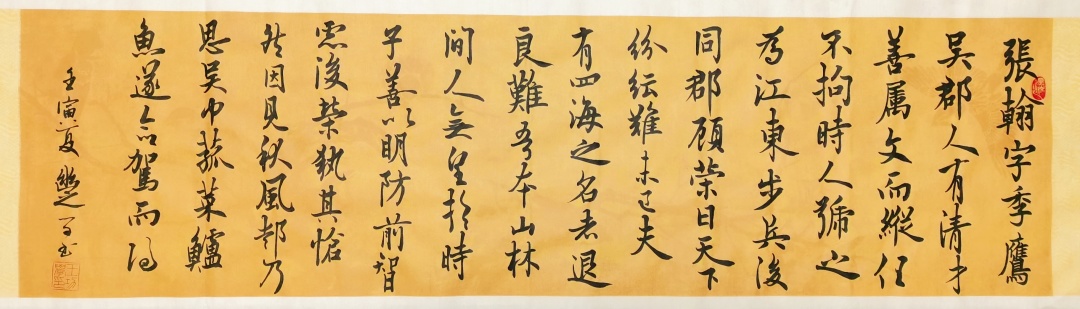 張翰字季鷹
吳郡人有清才
善属文而縱任
不拘時人號之
為江東步兵後
同郡顧榮曰天下
紛紜難未已夫
有四海之名者退
良難吾本山林
間人無望於時
子善以明防前智
慮後榮執其愴
然因見秋風起乃
思吳中菰菜鱸
魚遂命駕而歸
壬寅夏書